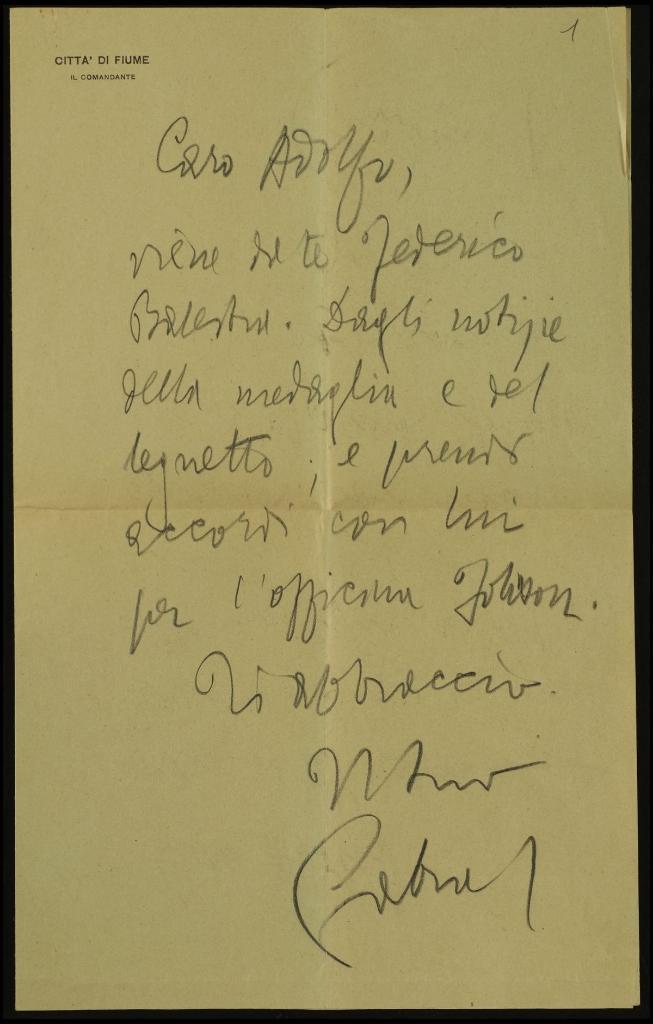 1
CITTA' DI FIUME
IL COMANDANTE
Caro Adolfo,
viene da te Federico
Balestra. Dagli notizie
della medaglia e del
legnetto; e prendi
accordi con lui
per l'officina Johnson.
Ti abbraccio.
Il tuo
Gabriel